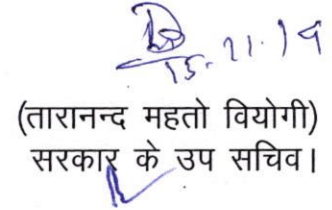 15.11.19
(तारानन्द महतो वियोगी)
सरकार के उप सचिव।